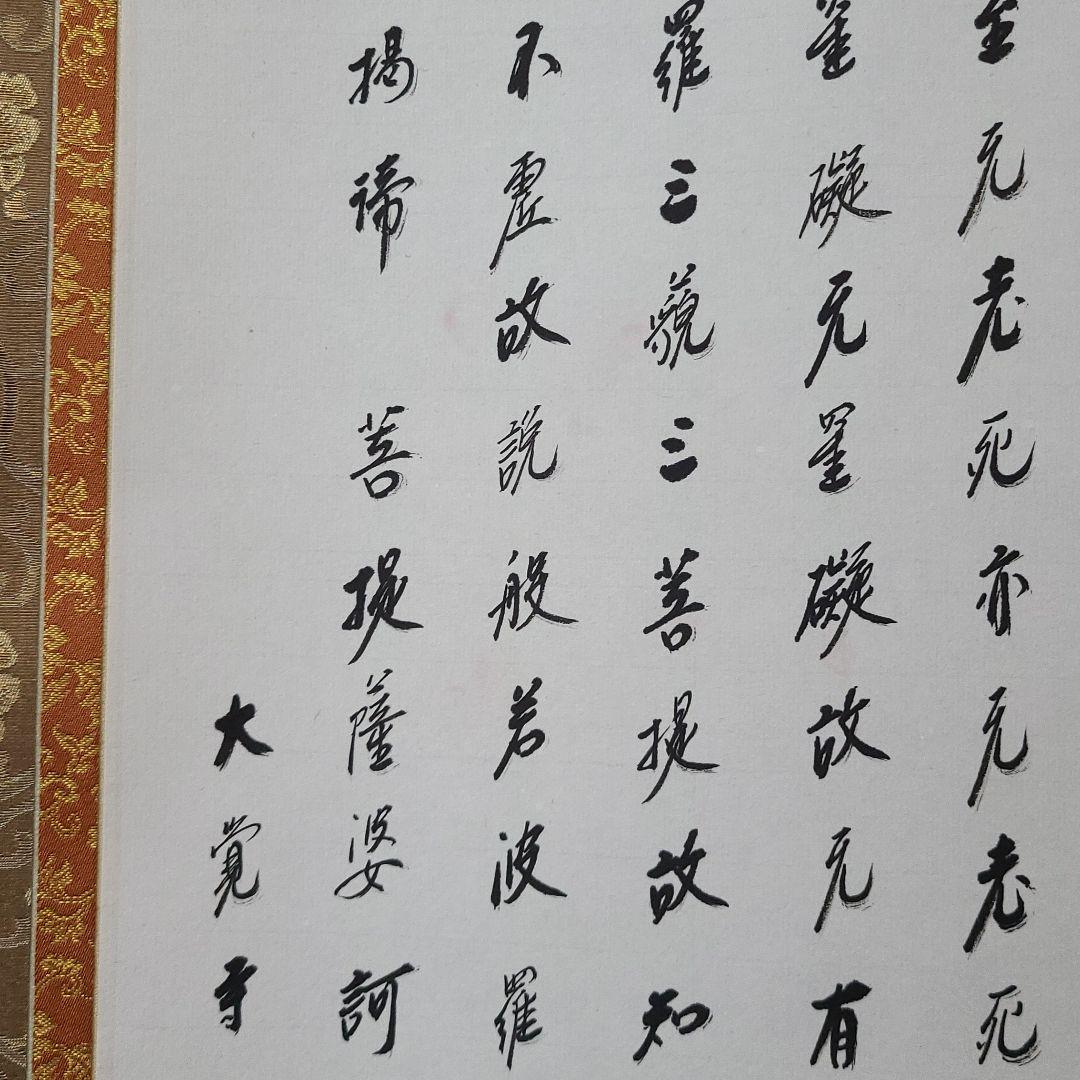 至无老死亦无老死
罣礙无罣礙故无有
羅三藐三菩提故知
不虛故説般若波羅
揭諦 菩提薩婆訶
大覺寺